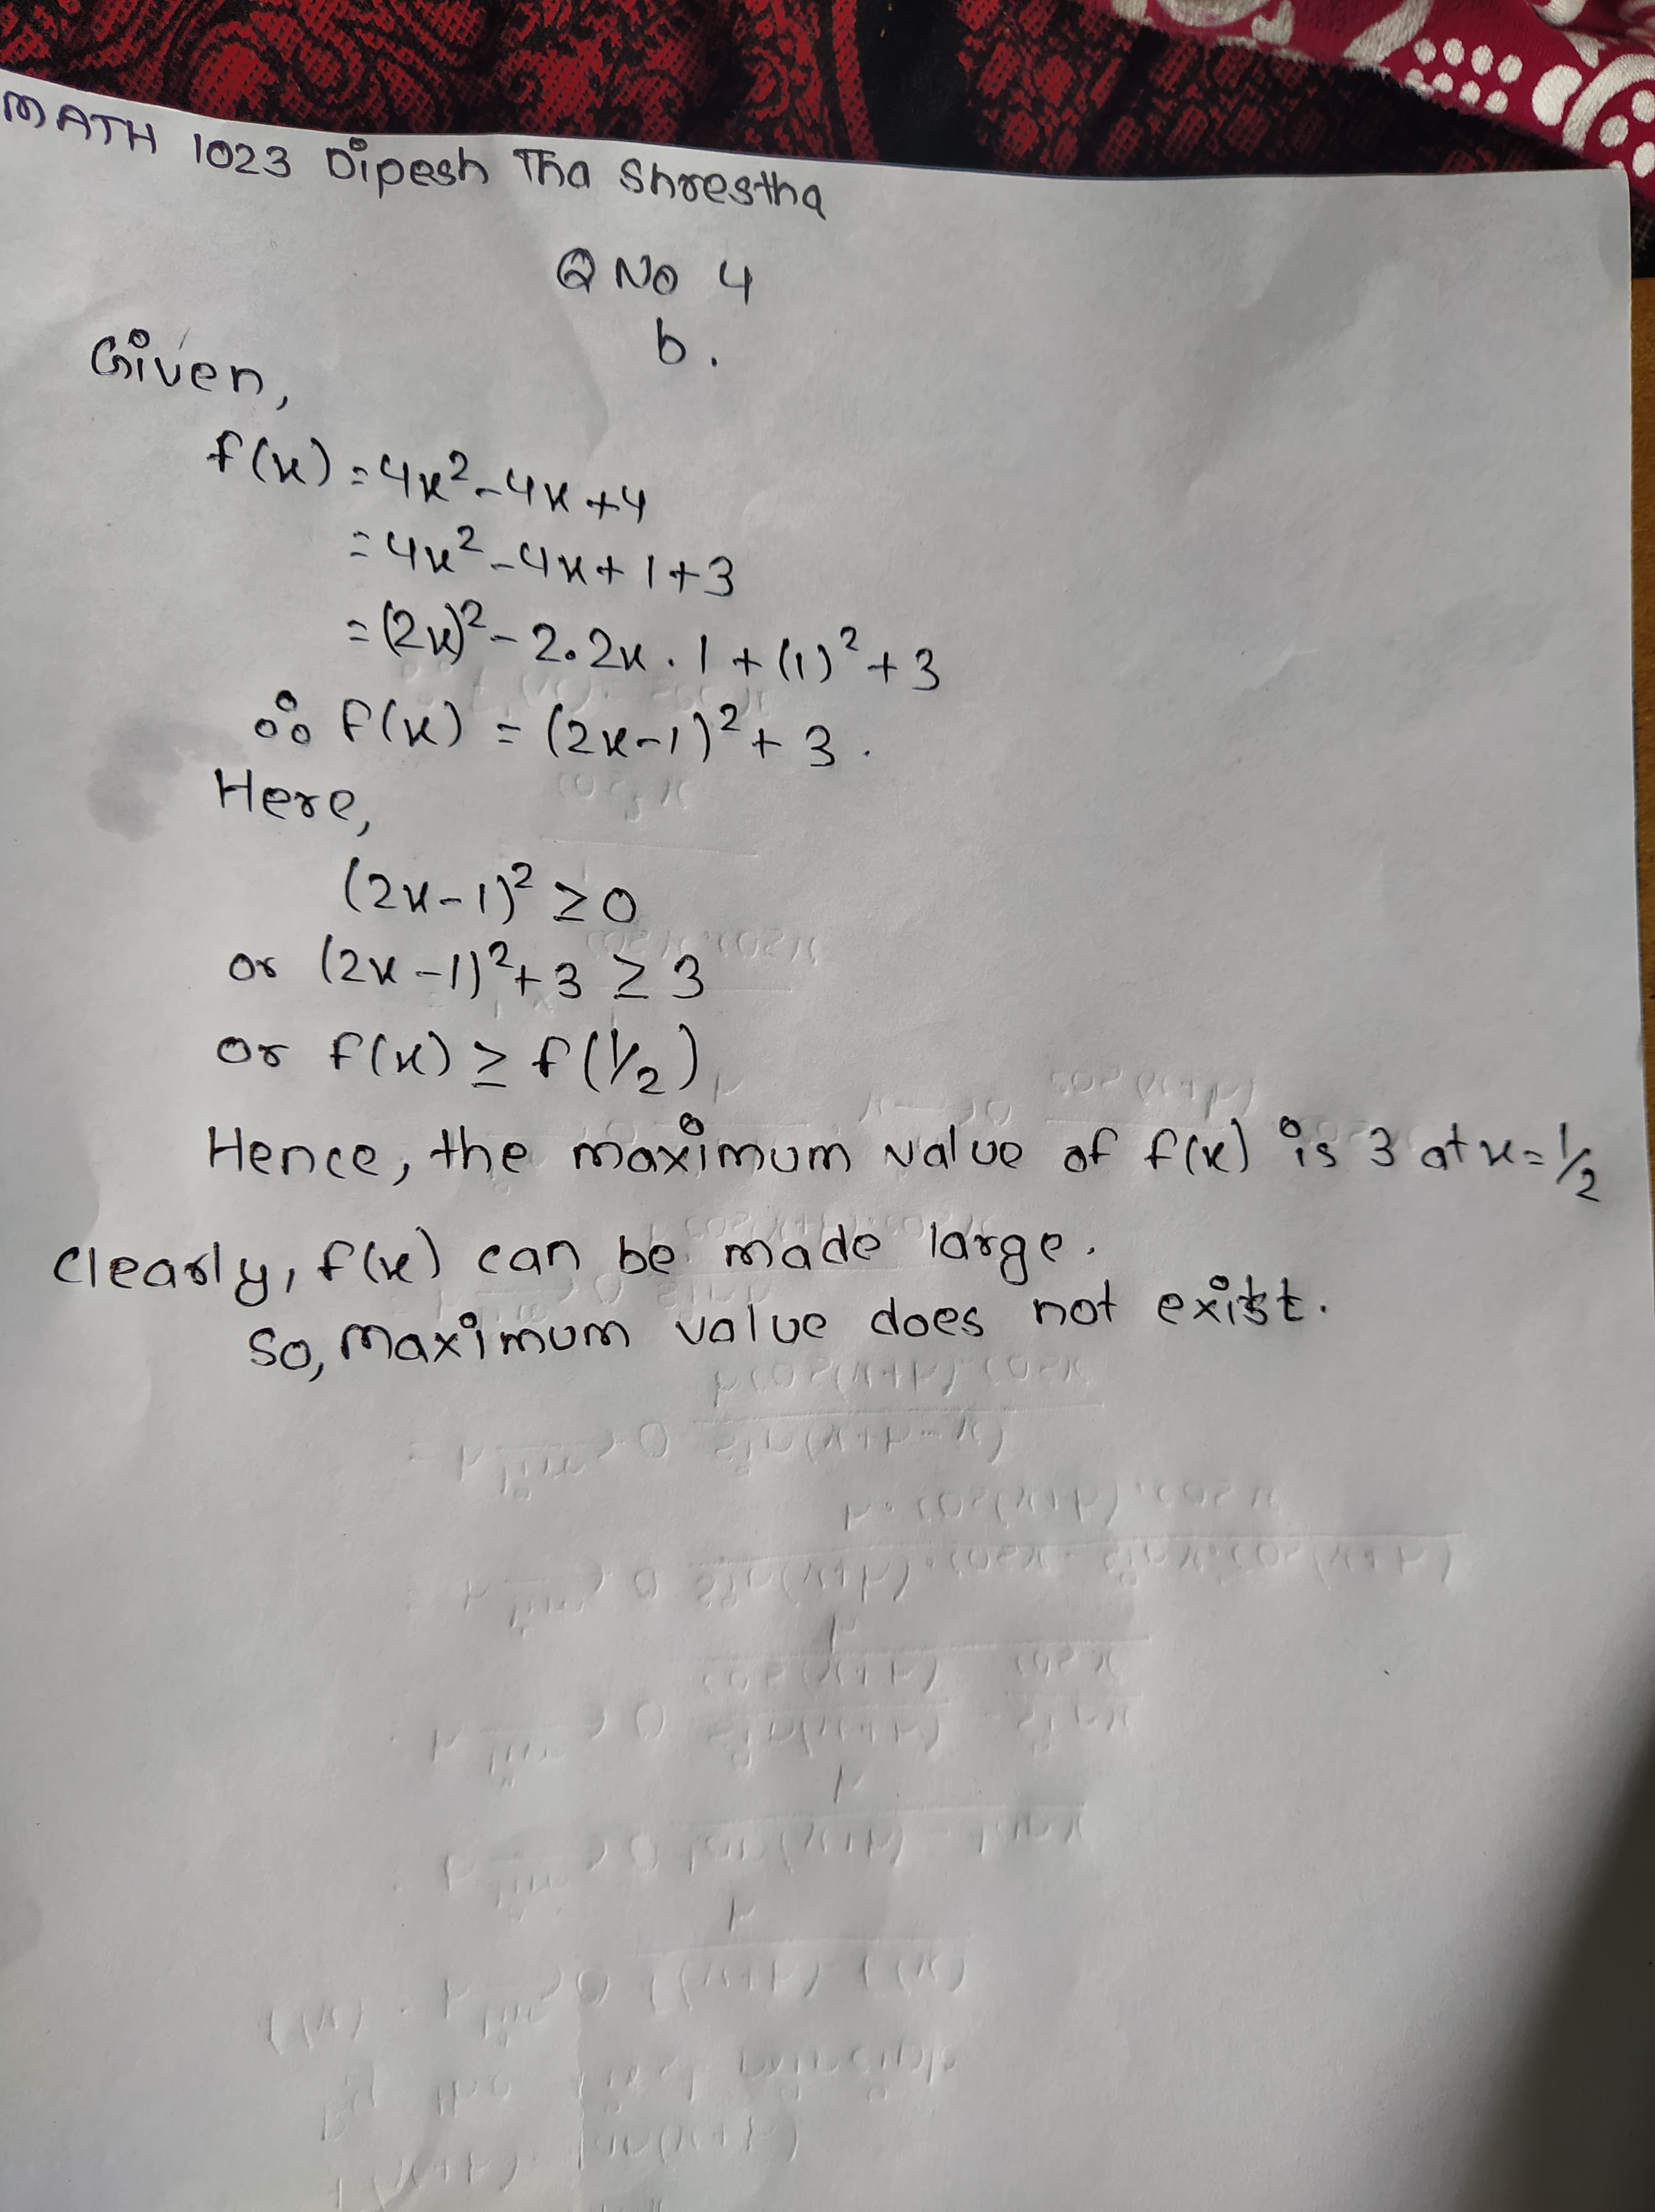 MATH 1023 Dipesh Tha Shrestha
Q No 4
b.
Given,
f(x) = 4x² - 4x + 4
= 4x² - 4x + 1 + 3
= (2x)² - 2.2x.1 + (1)² + 3
∴ f(x) = (2x-1)² + 3.
Here,
(2x-1)² ≥ 0
or (2x-1)² + 3 ≥ 3
or f(x) ≥ f(1/2)
Hence, the maximum value of f(x) is 3 at x = 1/2
Clearly, f(x) can be made large.
So, Maximum value does not exist.